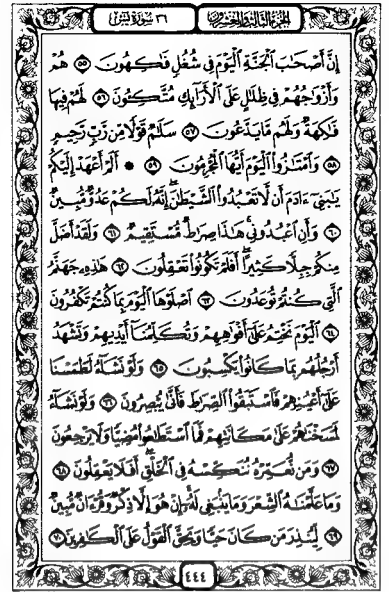 الجزء الثالث والعشرون
٣٦ سورة يس
إِنَّ أَصْحَٰبَ ٱلْجَنَّةِ ٱلْيَوْمَ فِى شُغُلٍ فَٰكِهُونَ ٥٥ هُمْ
وَأَزْوَٰجُهُمْ فِى ظِلَٰلٍ عَلَى ٱلْأَرَآئِكِ مُتَّكِـُٔونَ ٥٦ لَهُمْ فِيهَا
فَٰكِهَةٌ وَلَهُم مَّا يَدَّعُونَ ٥٧ سَلَٰمٌ قَوْلًا مِّن رَّبٍّ رَّحِيمٍ
٥٨ وَٱمْتَٰزُوا۟ ٱلْيَوْمَ أَيُّهَا ٱلْمُجْرِمُونَ ٥٩ ۞ أَلَمْ أَعْهَدْ إِلَيْكُمْ
يَٰبَنِىٓ ءَادَمَ أَن لَّا تَعْبُدُوا۟ ٱلشَّيْطَٰنَ ۖ إِنَّهُۥ لَكُمْ عَدُوٌّ مُّبِينٌ
٦٠ وَأَنِ ٱعْبُدُونِى ۚ هَٰذَا صِرَٰطٌ مُّسْتَقِيمٌ ٦١ وَلَقَدْ أَضَلَّ
مِنكُمْ جِبِلًّا كَثِيرًا ۖ أَفَلَمْ تَكُونُوا۟ تَعْقِلُونَ ٦٢ هَٰذِهِۦ جَهَنَّمُ
ٱلَّتِى كُنتُمْ تُوعَدُونَ ٦٣ ٱصْلَوْهَا ٱلْيَوْمَ بِمَا كُنتُمْ تَكْفُرُونَ
٦٤ ٱلْيَوْمَ نَخْتِمُ عَلَىٰٓ أَفْوَٰهِهِمْ وَتُكَلِّمُنَآ أَيْدِيهِمْ وَتَشْهَدُ
أَرْجُلُهُم بِمَا كَانُوا۟ يَكْسِبُونَ ٦٥ وَلَوْ نَشَآءُ لَطَمَسْنَا
عَلَىٰٓ أَعْيُنِهِمْ فَٱسْتَبَقُوا۟ ٱلصِّرَٰطَ فَأَنَّىٰ يُبْصِرُونَ ٦٦ وَلَوْ نَشَآءُ
لَمَسَخْنَٰهُمْ عَلَىٰ مَكَانَتِهِمْ فَمَا ٱسْتَطَٰعُوا۟ مُضِيًّا وَلَا يَرْجِعُونَ
٦٧ وَمَن نُّعَمِّرْهُ نُنَكِّسْهُ فِى ٱلْخَلْقِ ۖ أَفَلَا يَعْقِلُونَ ٦٨
وَمَا عَلَّمْنَٰهُ ٱلشِّعْرَ وَمَا يَنۢبَغِى لَهُۥٓ ۚ إِنْ هُوَ إِلَّا ذِكْرٌ وَقُرْءَانٌ مُّبِينٌ
٦٩ لِّيُنذِرَ مَن كَانَ حَيًّا وَيَحِقَّ ٱلْقَوْلُ عَلَى ٱلْكَٰفِرِينَ ٧٠
٤٤٤